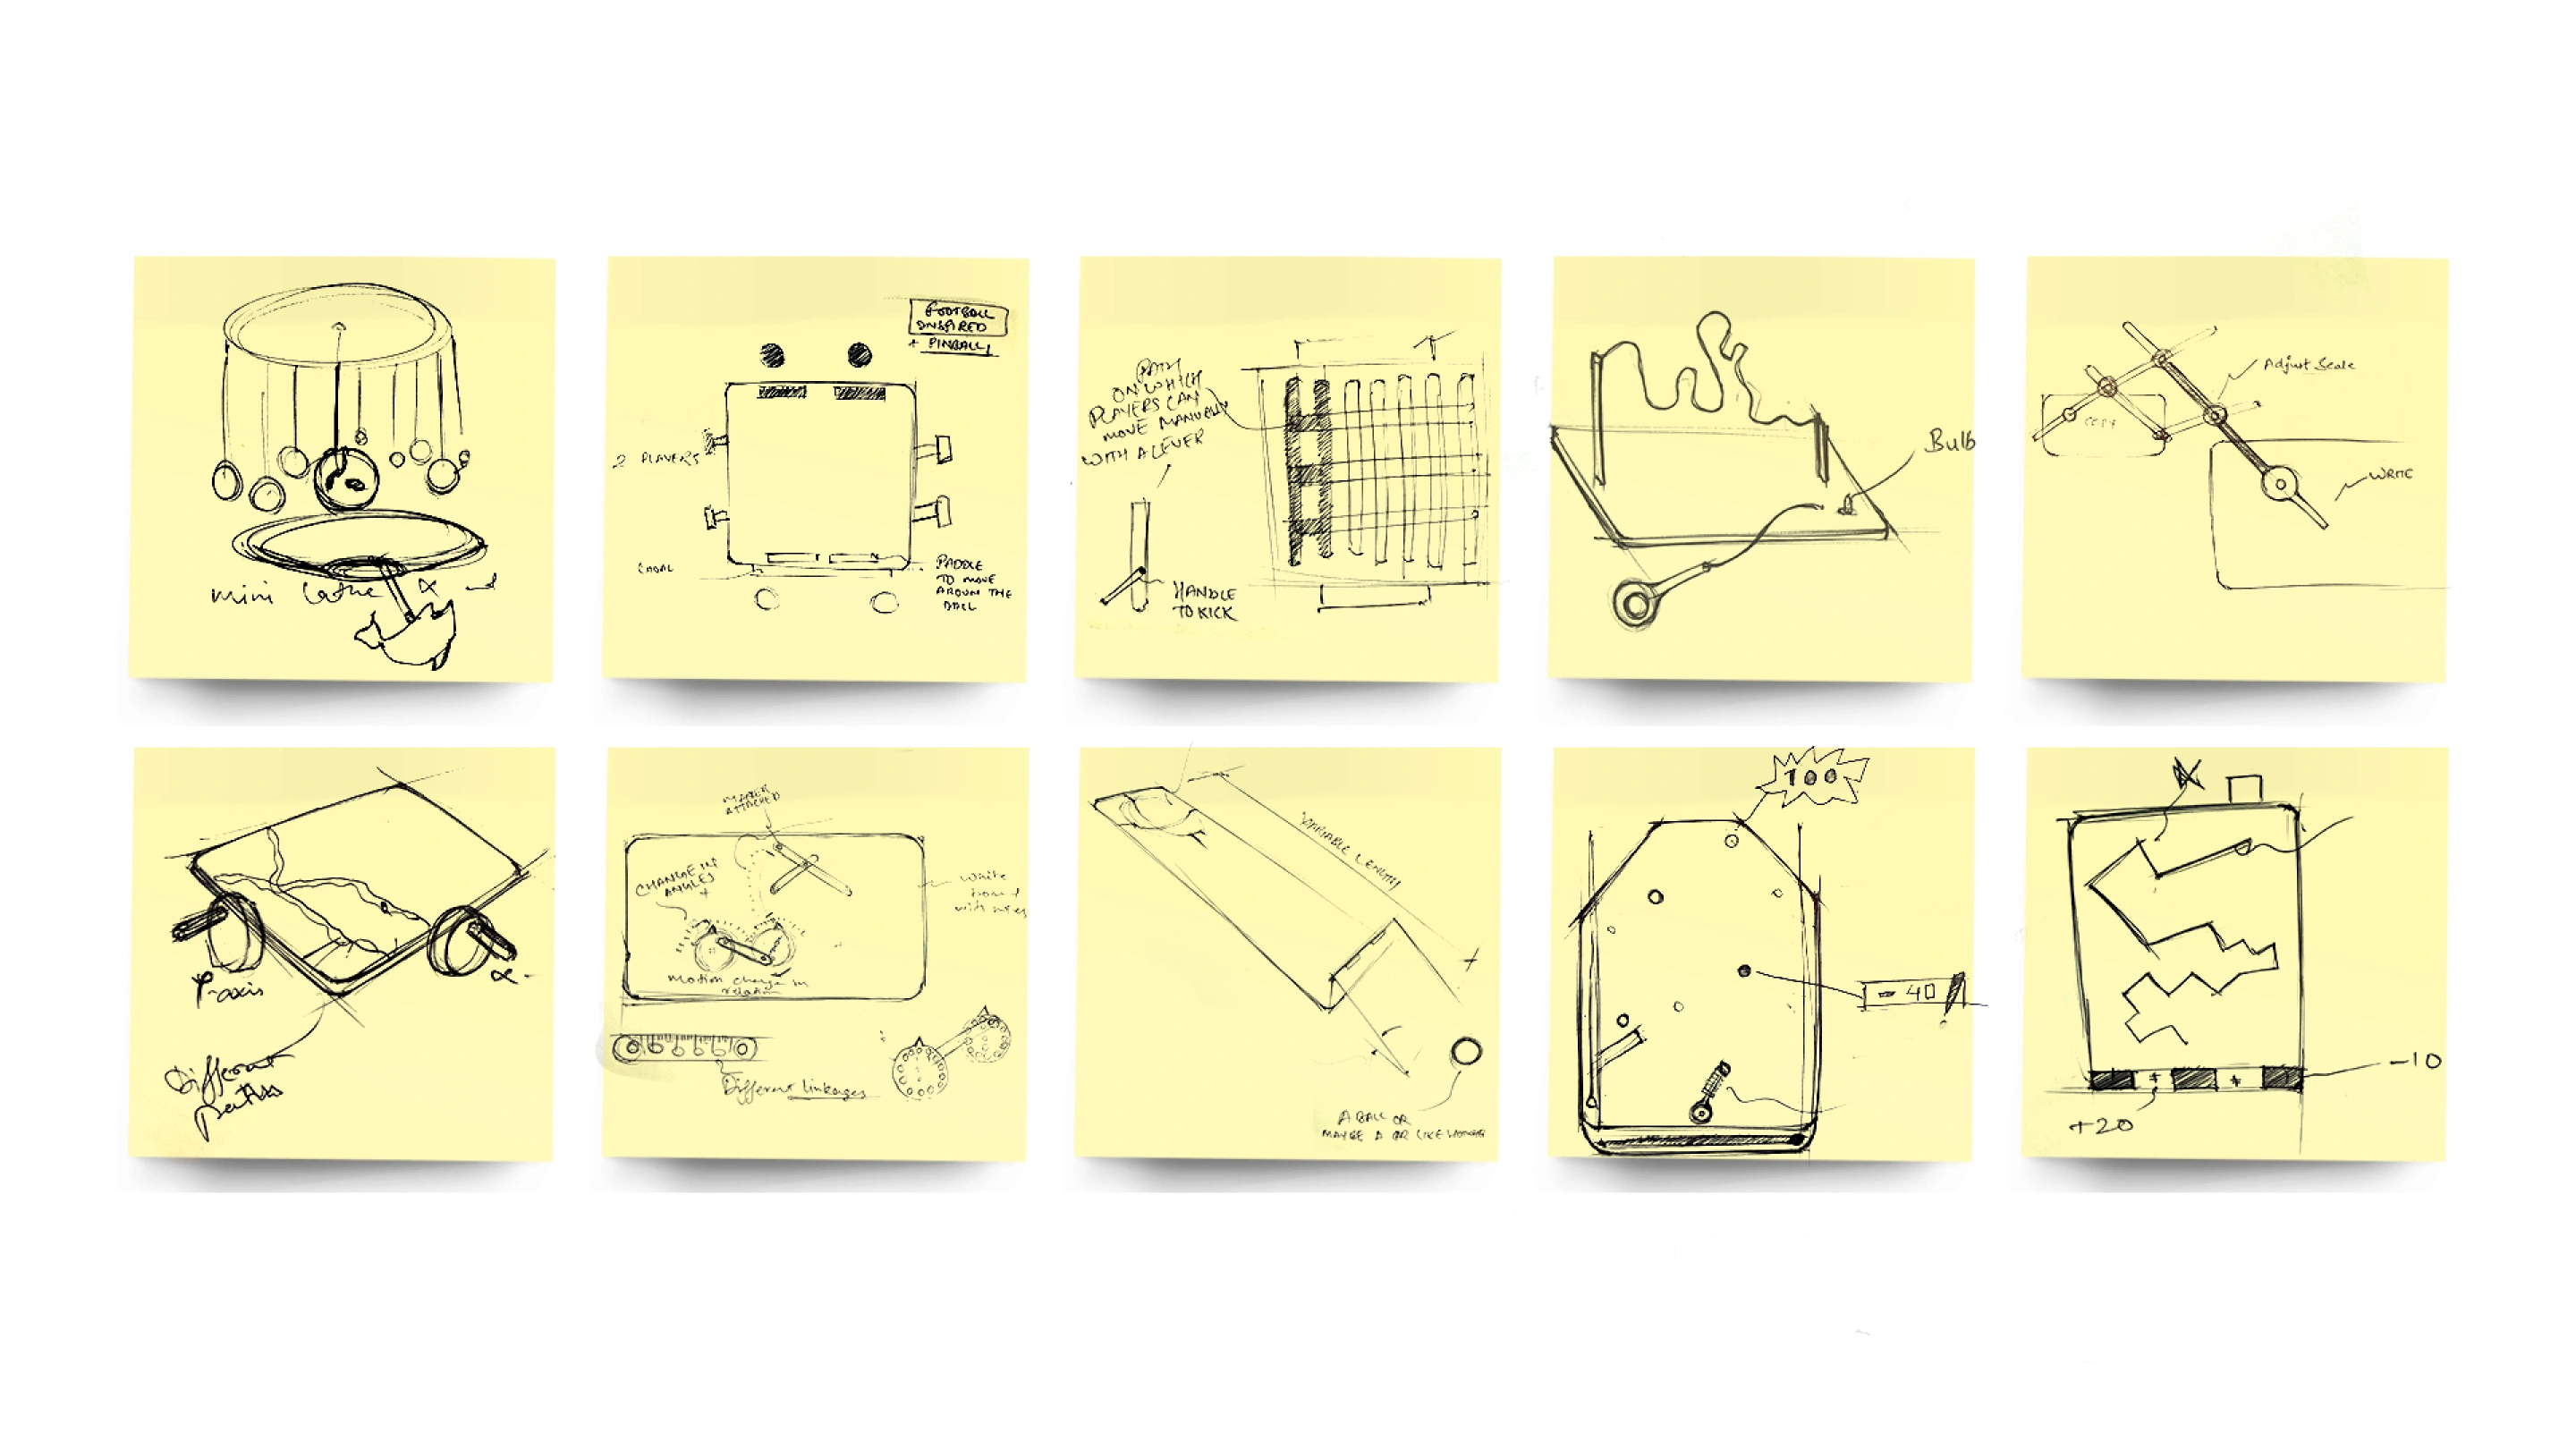 mini lathe
FOOTBALL
INSPIRED
+ PINBALL
2 PLAYERS
GOAL
PADDLE
TO MOVE
AROUN THE
BALL
PATH
ON WHICH
PLAYERS CAN
MOVE MANUALLY
WITH A LEVER
HANDLE
TO KICK
Bulb
Adjust Scale
COPY
WRITE
Y-axis
X-
Different
paths
ATTACHED
CHANGE IN
ANGLES
White
board
with
Motion change in
relation
Different linkages
VARIABLE LENGTH
A BALL OR
MAYBE A CAR LIKE
100
- 40
-10
+ +
+20